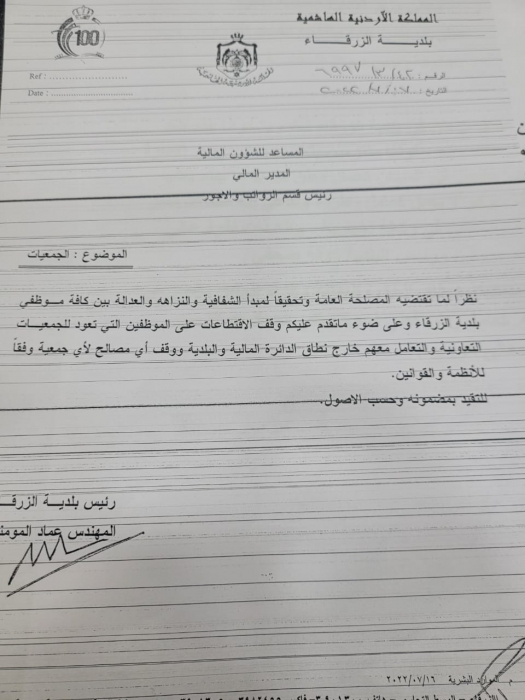 المملكة الأردنية الهاشمية
بلديـــة الزرقـــاء
100
Ref :
Date :
الرقم :
التاريخ :
المساعد للشؤون المالية
المدير المالي
رئيس قسم الرواتب والاجور
الموضوع : الجمعيات
نظراً لما تقتضيه المصلحة العامة وتحقيقاً لمبدأ الشفافية والنزاهه والعدالة بين كافة موظفي
بلدية الزرقاء وعلى ضوء ماتقدم عليكم وقف الاقتطاعات على الموظفين التي تعود للجمعيات
التعاونية والتعامل معهم خارج نطاق الدائرة المالية والبلدية ووقف أي مصالح لأي جمعية وفقاً
للأنظمة والقوانين.
للتقيد بمضمونه وحسب الاصول.
رئيس بلديــة الزرقـ
المهندس عماد المومنـ
م الموارد البشرية ٢٠٢٢/٠٧/١٦